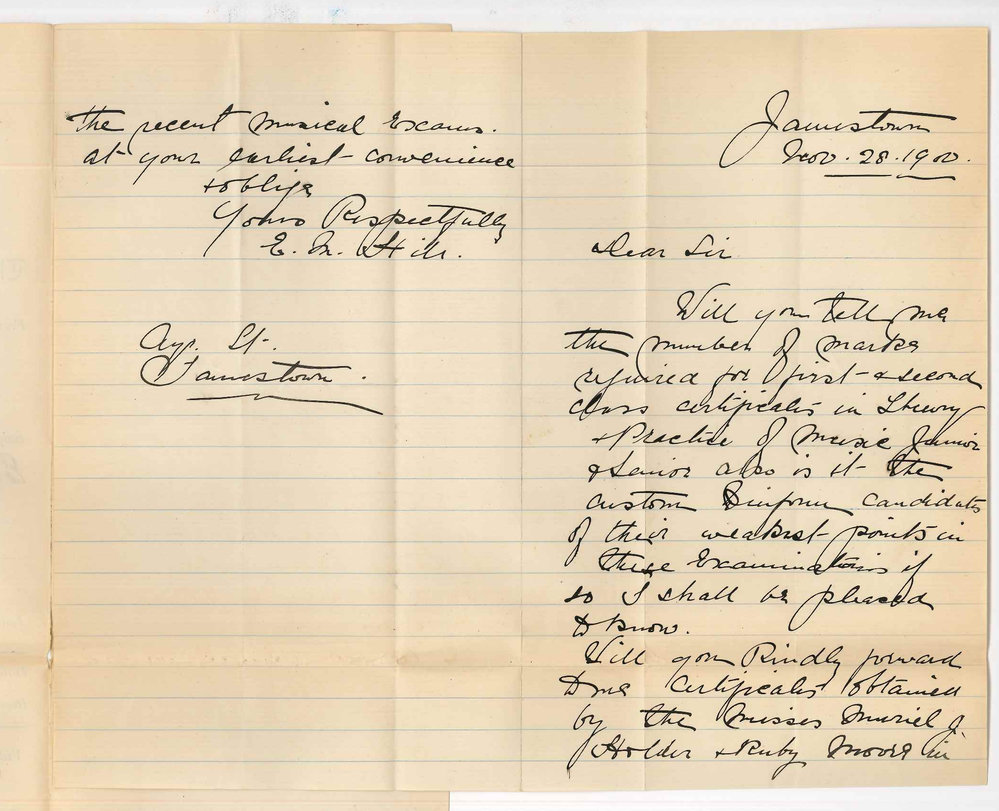 Jamestown
Nov. 28. 1900.
Dear Sir
Will you tell me
the number of marks
required for first & second
class certificates in Theory
& Practice of Music Junior
& Senior also is it the
custom to inform candidates
of their weakest points in
these Examinations if
so I shall be pleased
to know.
Will you Kindly forward
to me certificates obtained
by the Misses Muriel J.
Holder & Ruby Moore in
the recent Musical Exams.
at your earliest convenience
& oblige
Yours Respectfully
E. M. Hill.
Ayr. St.
Jamestown.